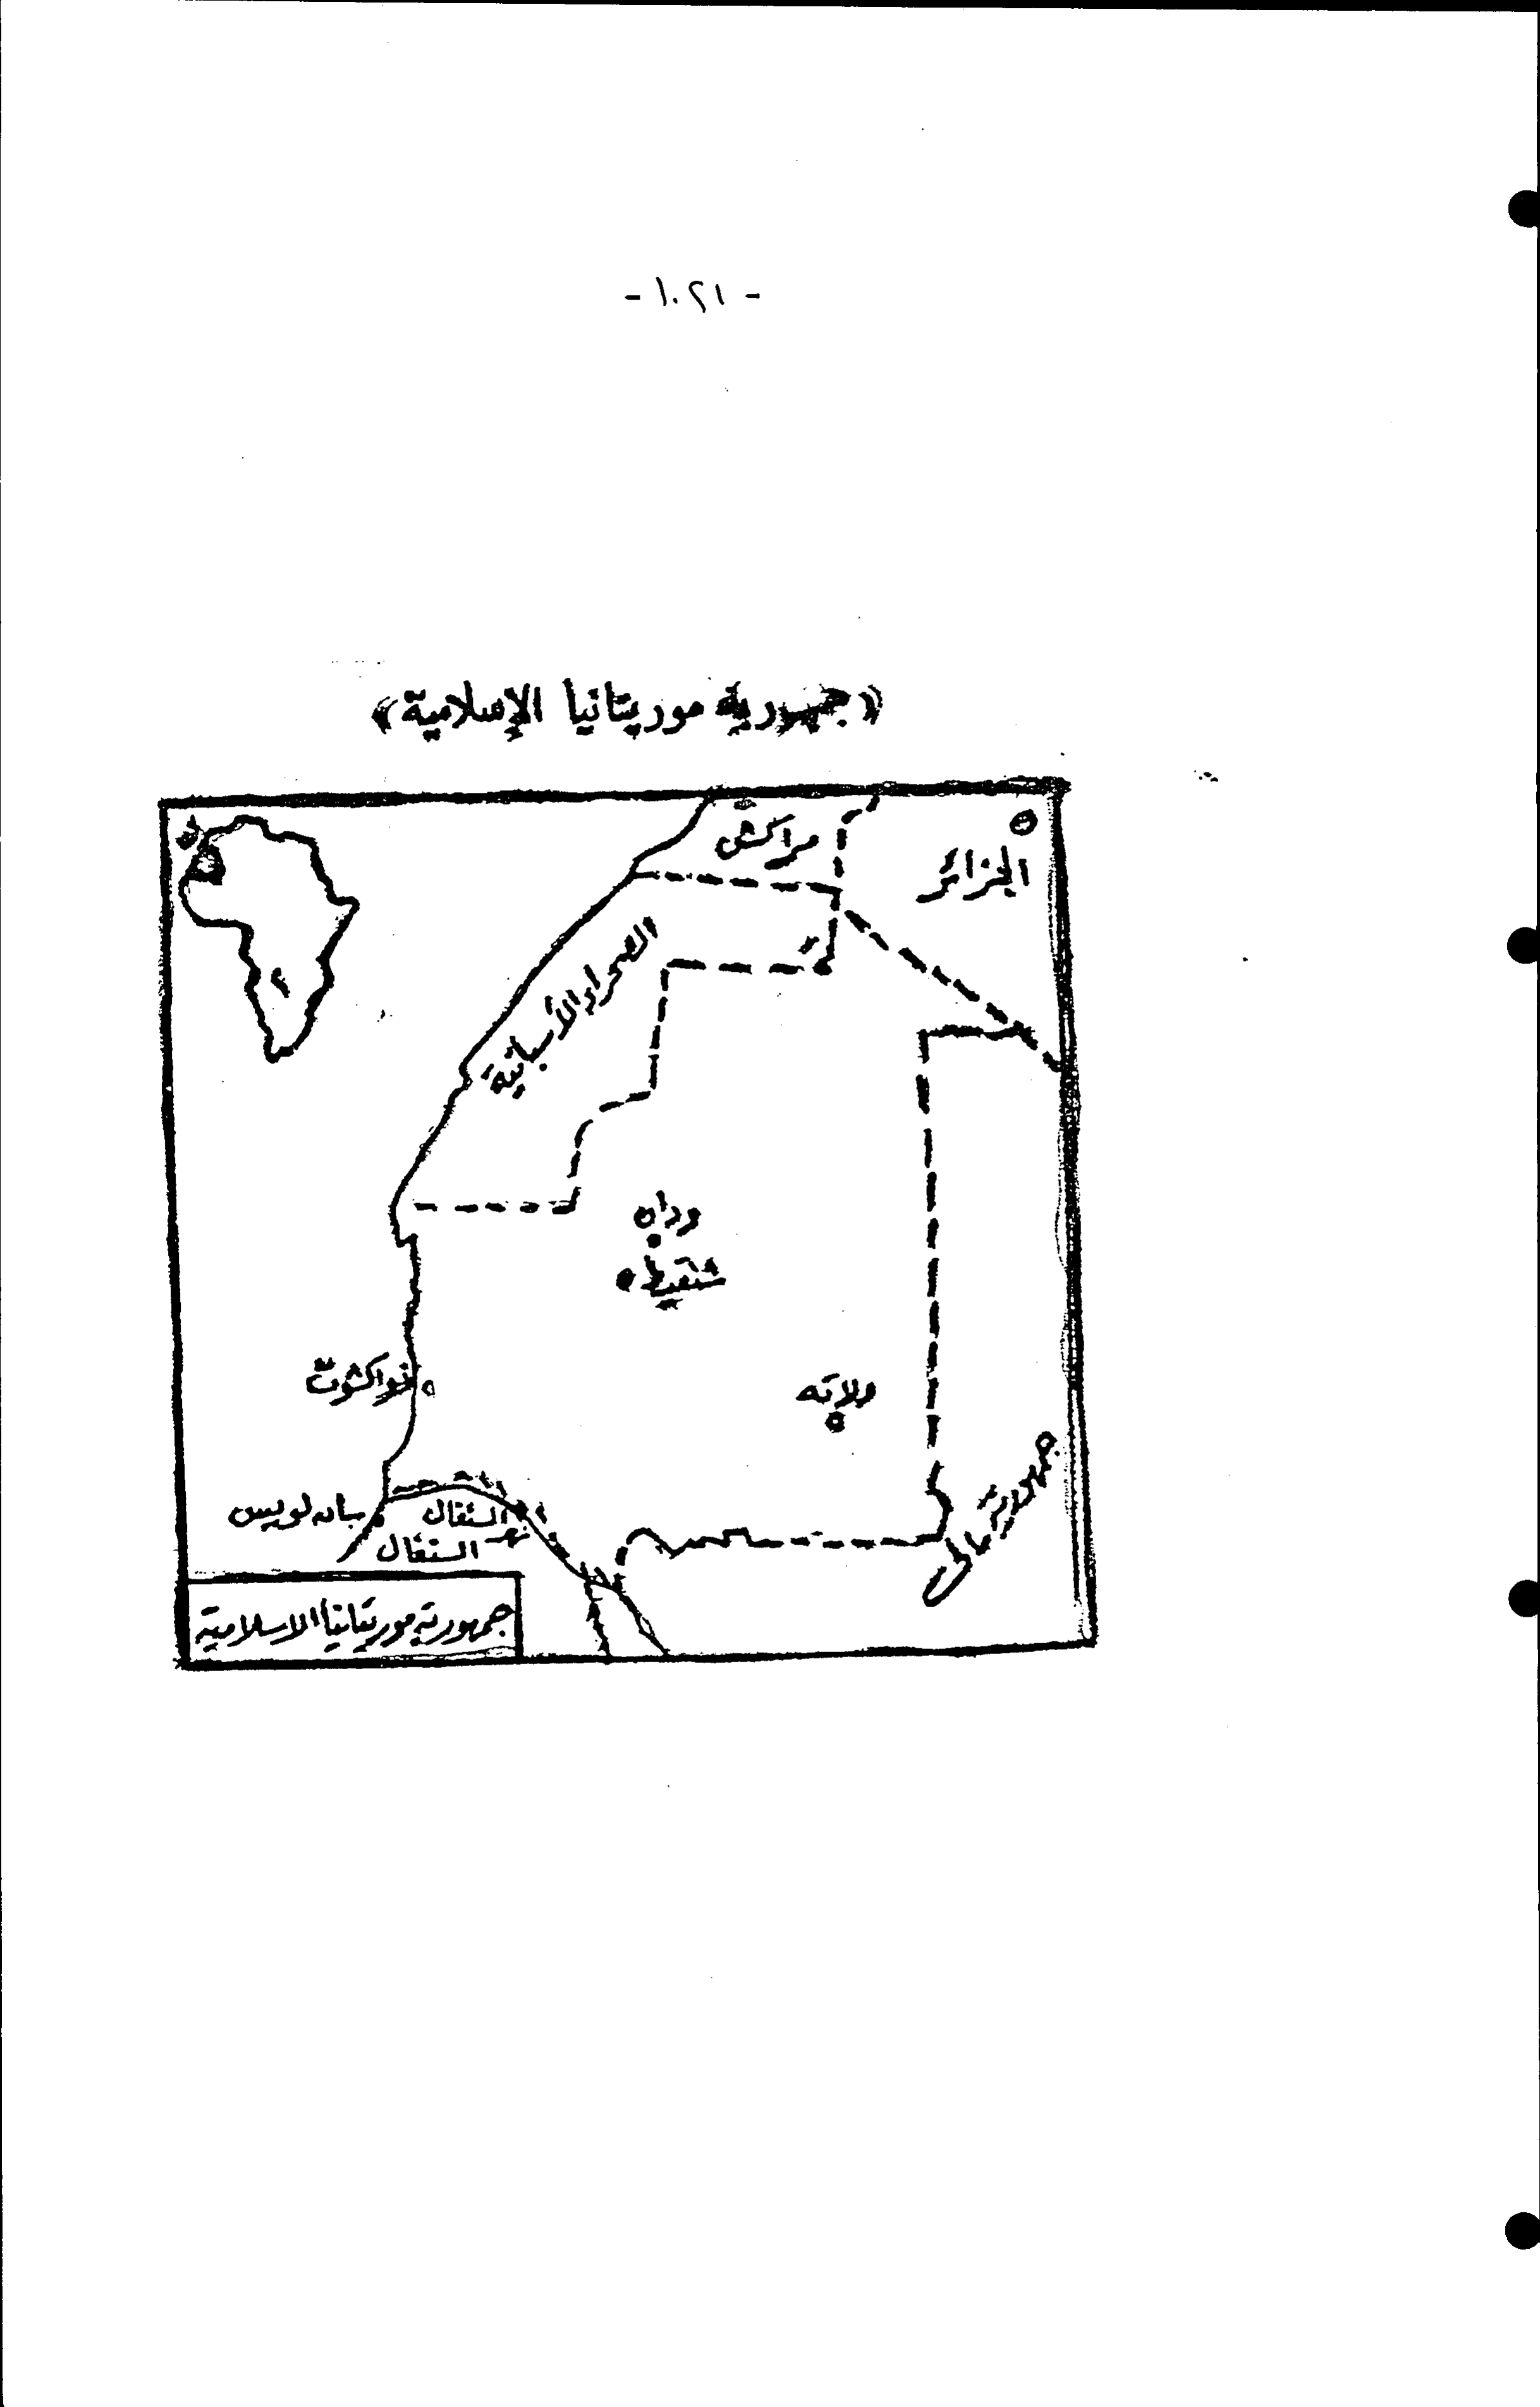 - ١٠٢١ -
«جمهورية موريتانيا الإسلامية»
مراكش
الجزائر
الصحراء الأسبانية
ودان
شنقيط
نواكشوت
ولاته
سان لويس
نهر السنغال
السنغال
جمهورية مالي
جمهورية موريتانيا الاسلامية